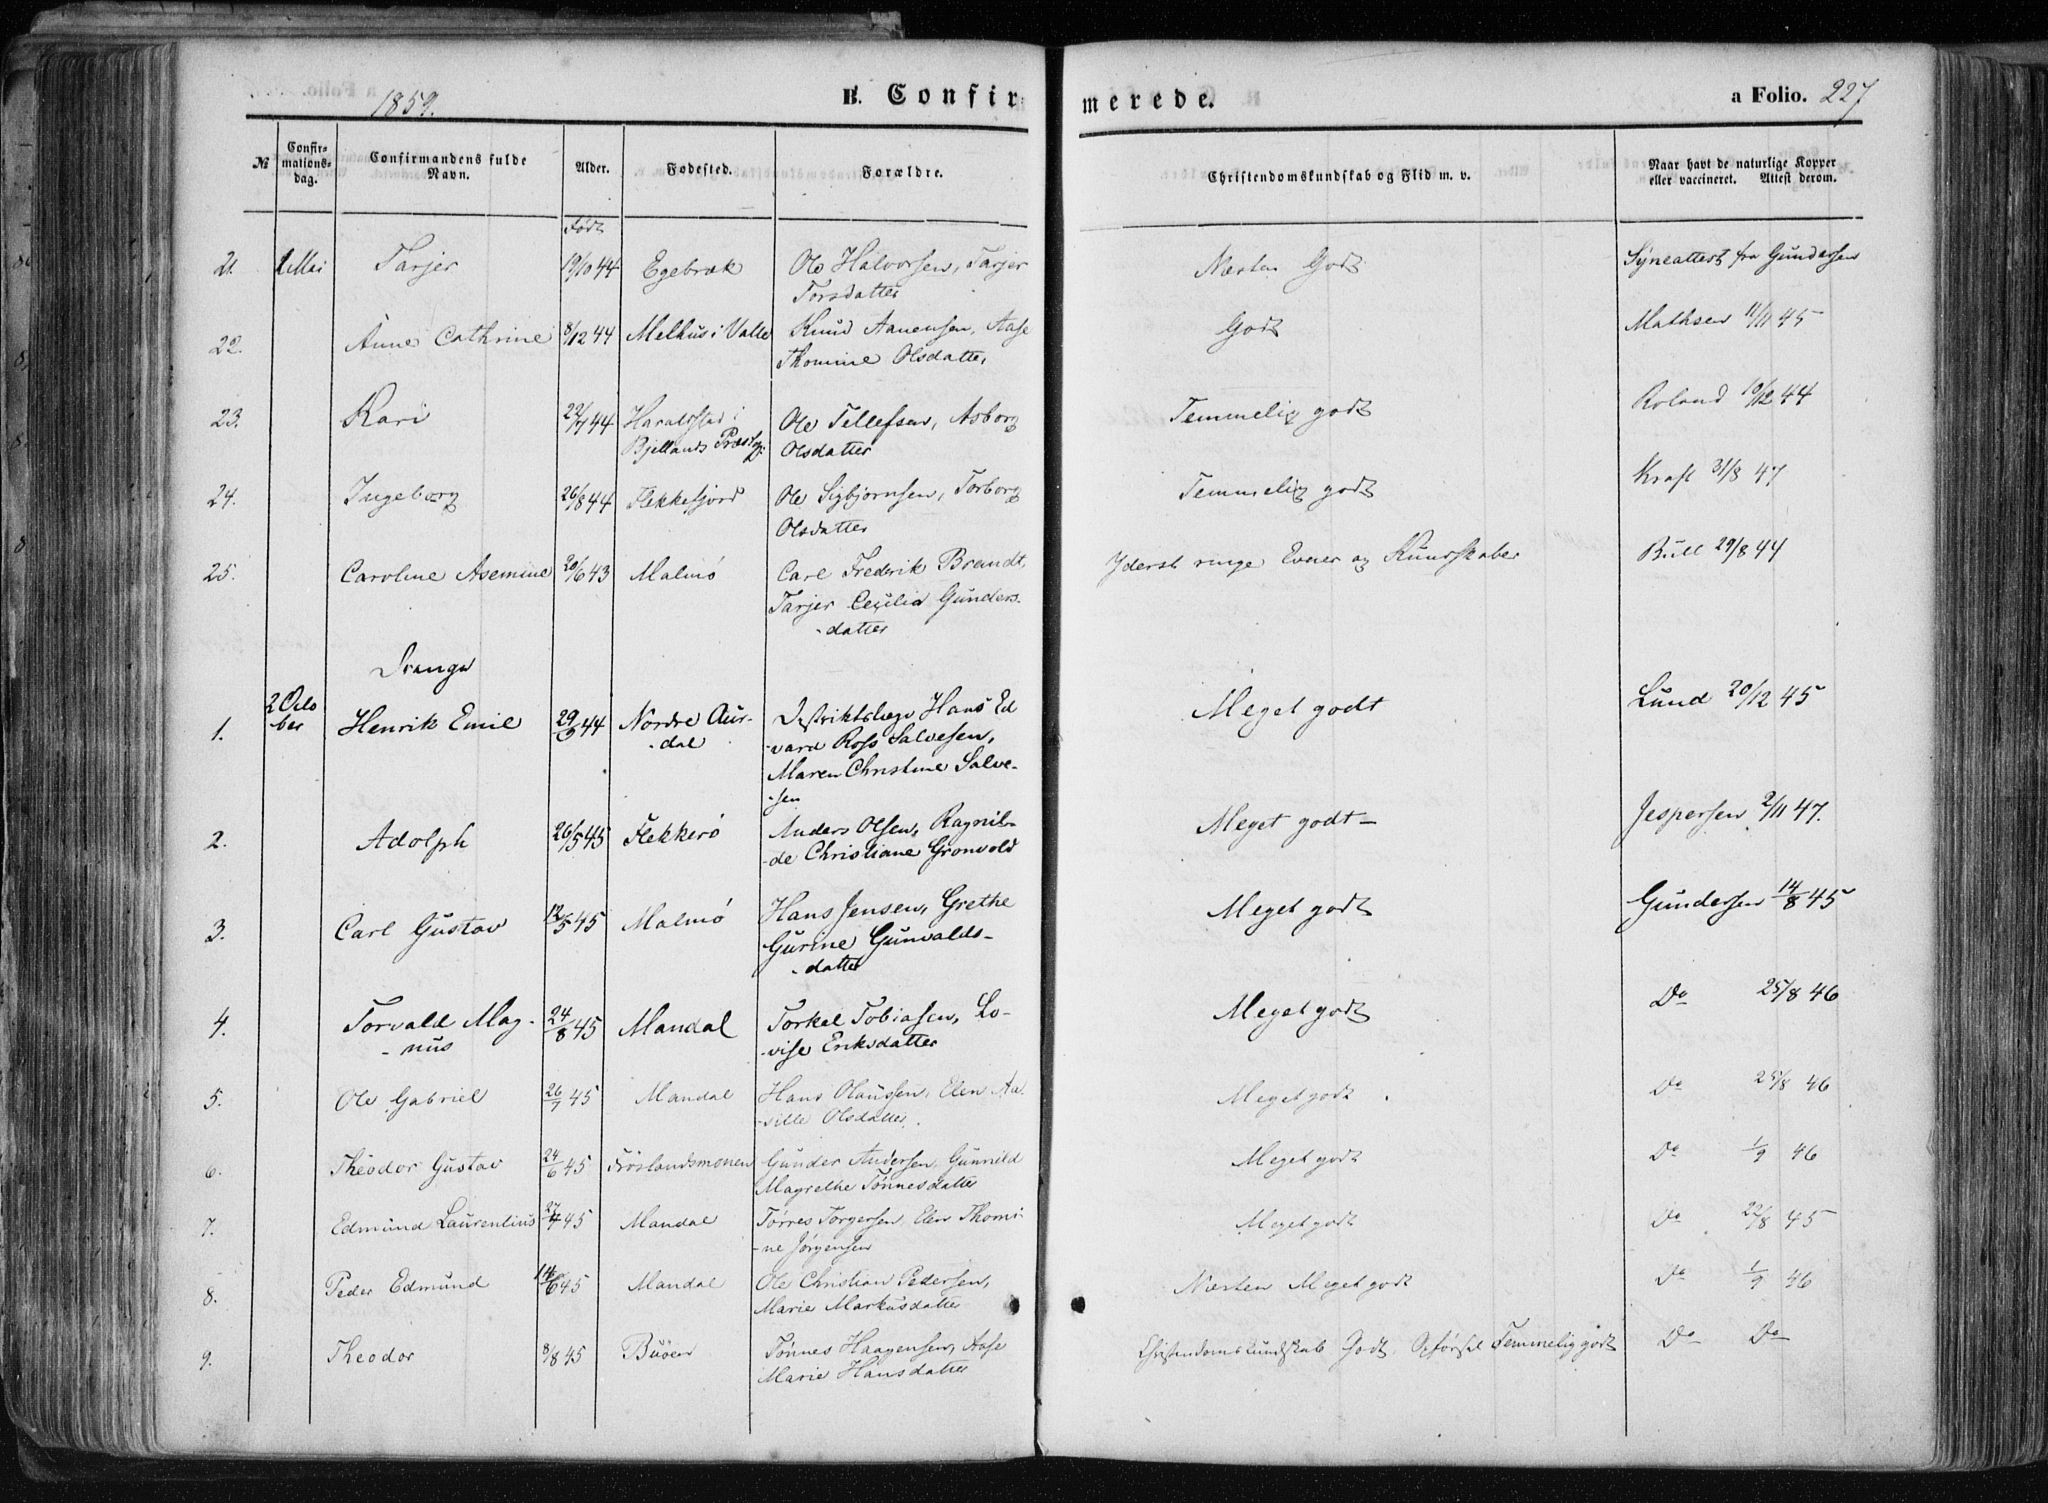 1859.
B. Confirmerede.
a Folio. 227
№ Confirmationsdag. Confirmandens fulde Navn. Alder. Fødested. Forældre. Christendomskundskab og Flid m. v. Naar havt de naturlige Kopper eller vaccineret. Attest derom.
Født
21. 1 Mai Tarjer 19/10 44 Egebræk Ole Halvorsen, Tarjer Næsten Godt Syneattest fra Gundersen
Torsdatter
22. Anne Cathrine 8/12 44 Melhus i Valle Knud Aanensen, Aase Godt Mathsen 11/11 45
Thomine Olsdatter,
23. Kari 22/7 44 Haraldstad i Ole Tellefsen, Asborg Temmelig godt Roland 10/12 44
Bjellands Præstg: Olsdatter
24. Ingeborg 26/8 44 Flekkefjord Ole Sigbjørnsen, Torborg Temmelig godt Kraft 31/8 47
Olsdatter
25. Caroline Asemine 20/6 43 Malmø Carl Frederik Brandt, Yderst ringe Evner og Kundskaber Bull 29/8 44
Tarjer Cecilia Gunders-
-datter
Drenge
1. 2 Octo- Henrik Emil 29/9 44 Nordre Aur- Distriktslæge Hans Ed Meget godt Lund 20/12 45
ber -dal -vard Ross Salvesen,
Maren Christine Salve-
-sen
2. Adolph 26/5 45 Flekkerø Anders Olsen, Ragnil- Meget godt Jespersen 2/11 47.
-de Christiane Gronvold
3. Carl Gustav 12/5 45 Malmø Hans Jensen, Grethe Meget godt Gundersen 14/8 45
Gurine Gunvalds-
-datter
4. Torvald Mag- 24/8 45 Mandal Torkel Tobiasen, Lo- Meget godt Do 25/8 46
-nus -vise Eriksdatter
5. Ole Gabriel 26/7 45 Mandal Hans Olaussen, Elen Aa- Meget godt Do 25/8 46
-sille Olsdatter,
6. Theodor Gustav 24/6 45 Frøslandsmonen Gunder Andersen, Gunnild Meget godt Do 1/9 46
Magrethe Tønnesdatter
7. Edmund Laurentius 27/7 45 Mandal Tørres Torgersen, Elen Thomi- Meget godt Do 22/8 45
-ne Jørgensen
8. Peder Edmund 14/6 45 Mandal Ole Christian Pedersen, Næsten Meget godt Do 1/9 46
Marie Markusdatter
9. Theodor 8/8 45 Buøen Tønnes Haagensen, Aase Christendomskundskab Godt, Opførsel Temmelig godt Do Do
Marie Hansdatter